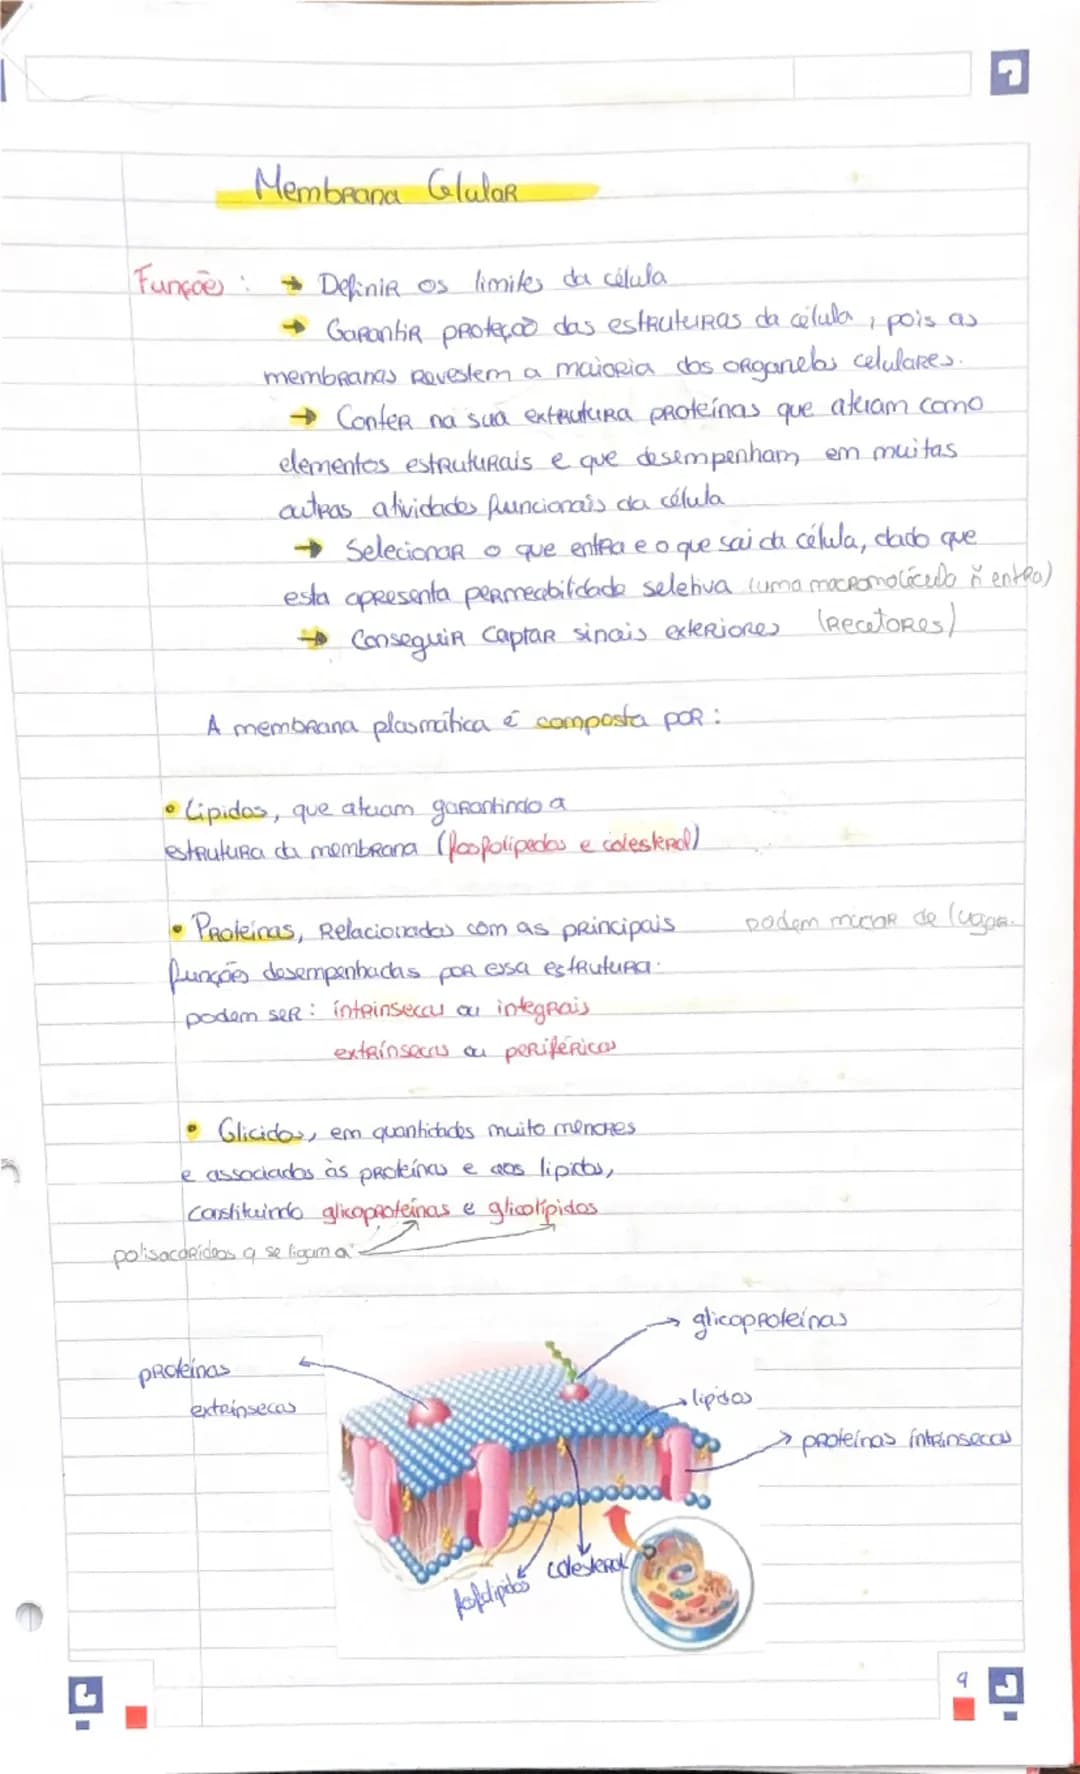 Membrana Celular
Funções : → Definir os limites da célula
→ Garantir proteção das estruturas da célula, pois as
membranas revestem a maioria dos organelos celulares.
→ Conter na sua extrutura proteínas que atuam como
elementos estruturais e que desempenham em muitas
outras atividades funcionais da célula
→ Selecionar o que entra e o que sai da célula, dado que
esta apresenta permeabilidade seletiva (uma macromolécula ñ entra)
→ Conseguir Captar sinais exteriores (recetores)
A membrana plasmática é composta por :
• Lípidos, que atuam garantindo a
estrutura da membrana (fosfolípedos e colesterol)
• Proteínas, relacionadas com as principais
podem mudar de lugar.
funções desempenhadas por essa estrutura.
podem ser : intrínsecas ou integrais
extrínsecas ou periféricas
• Glicidos, em quantidades muito menores
e associados às proteínas e aos lipidos,
constituindo glicoproteínas e glicolípidos
polisacarídeos q se ligam a
→ glicoproteínas
proteínas
extrínsecas
→ lipidos
→ proteínas intrínsecas
colesterol
fosfolipidos
9